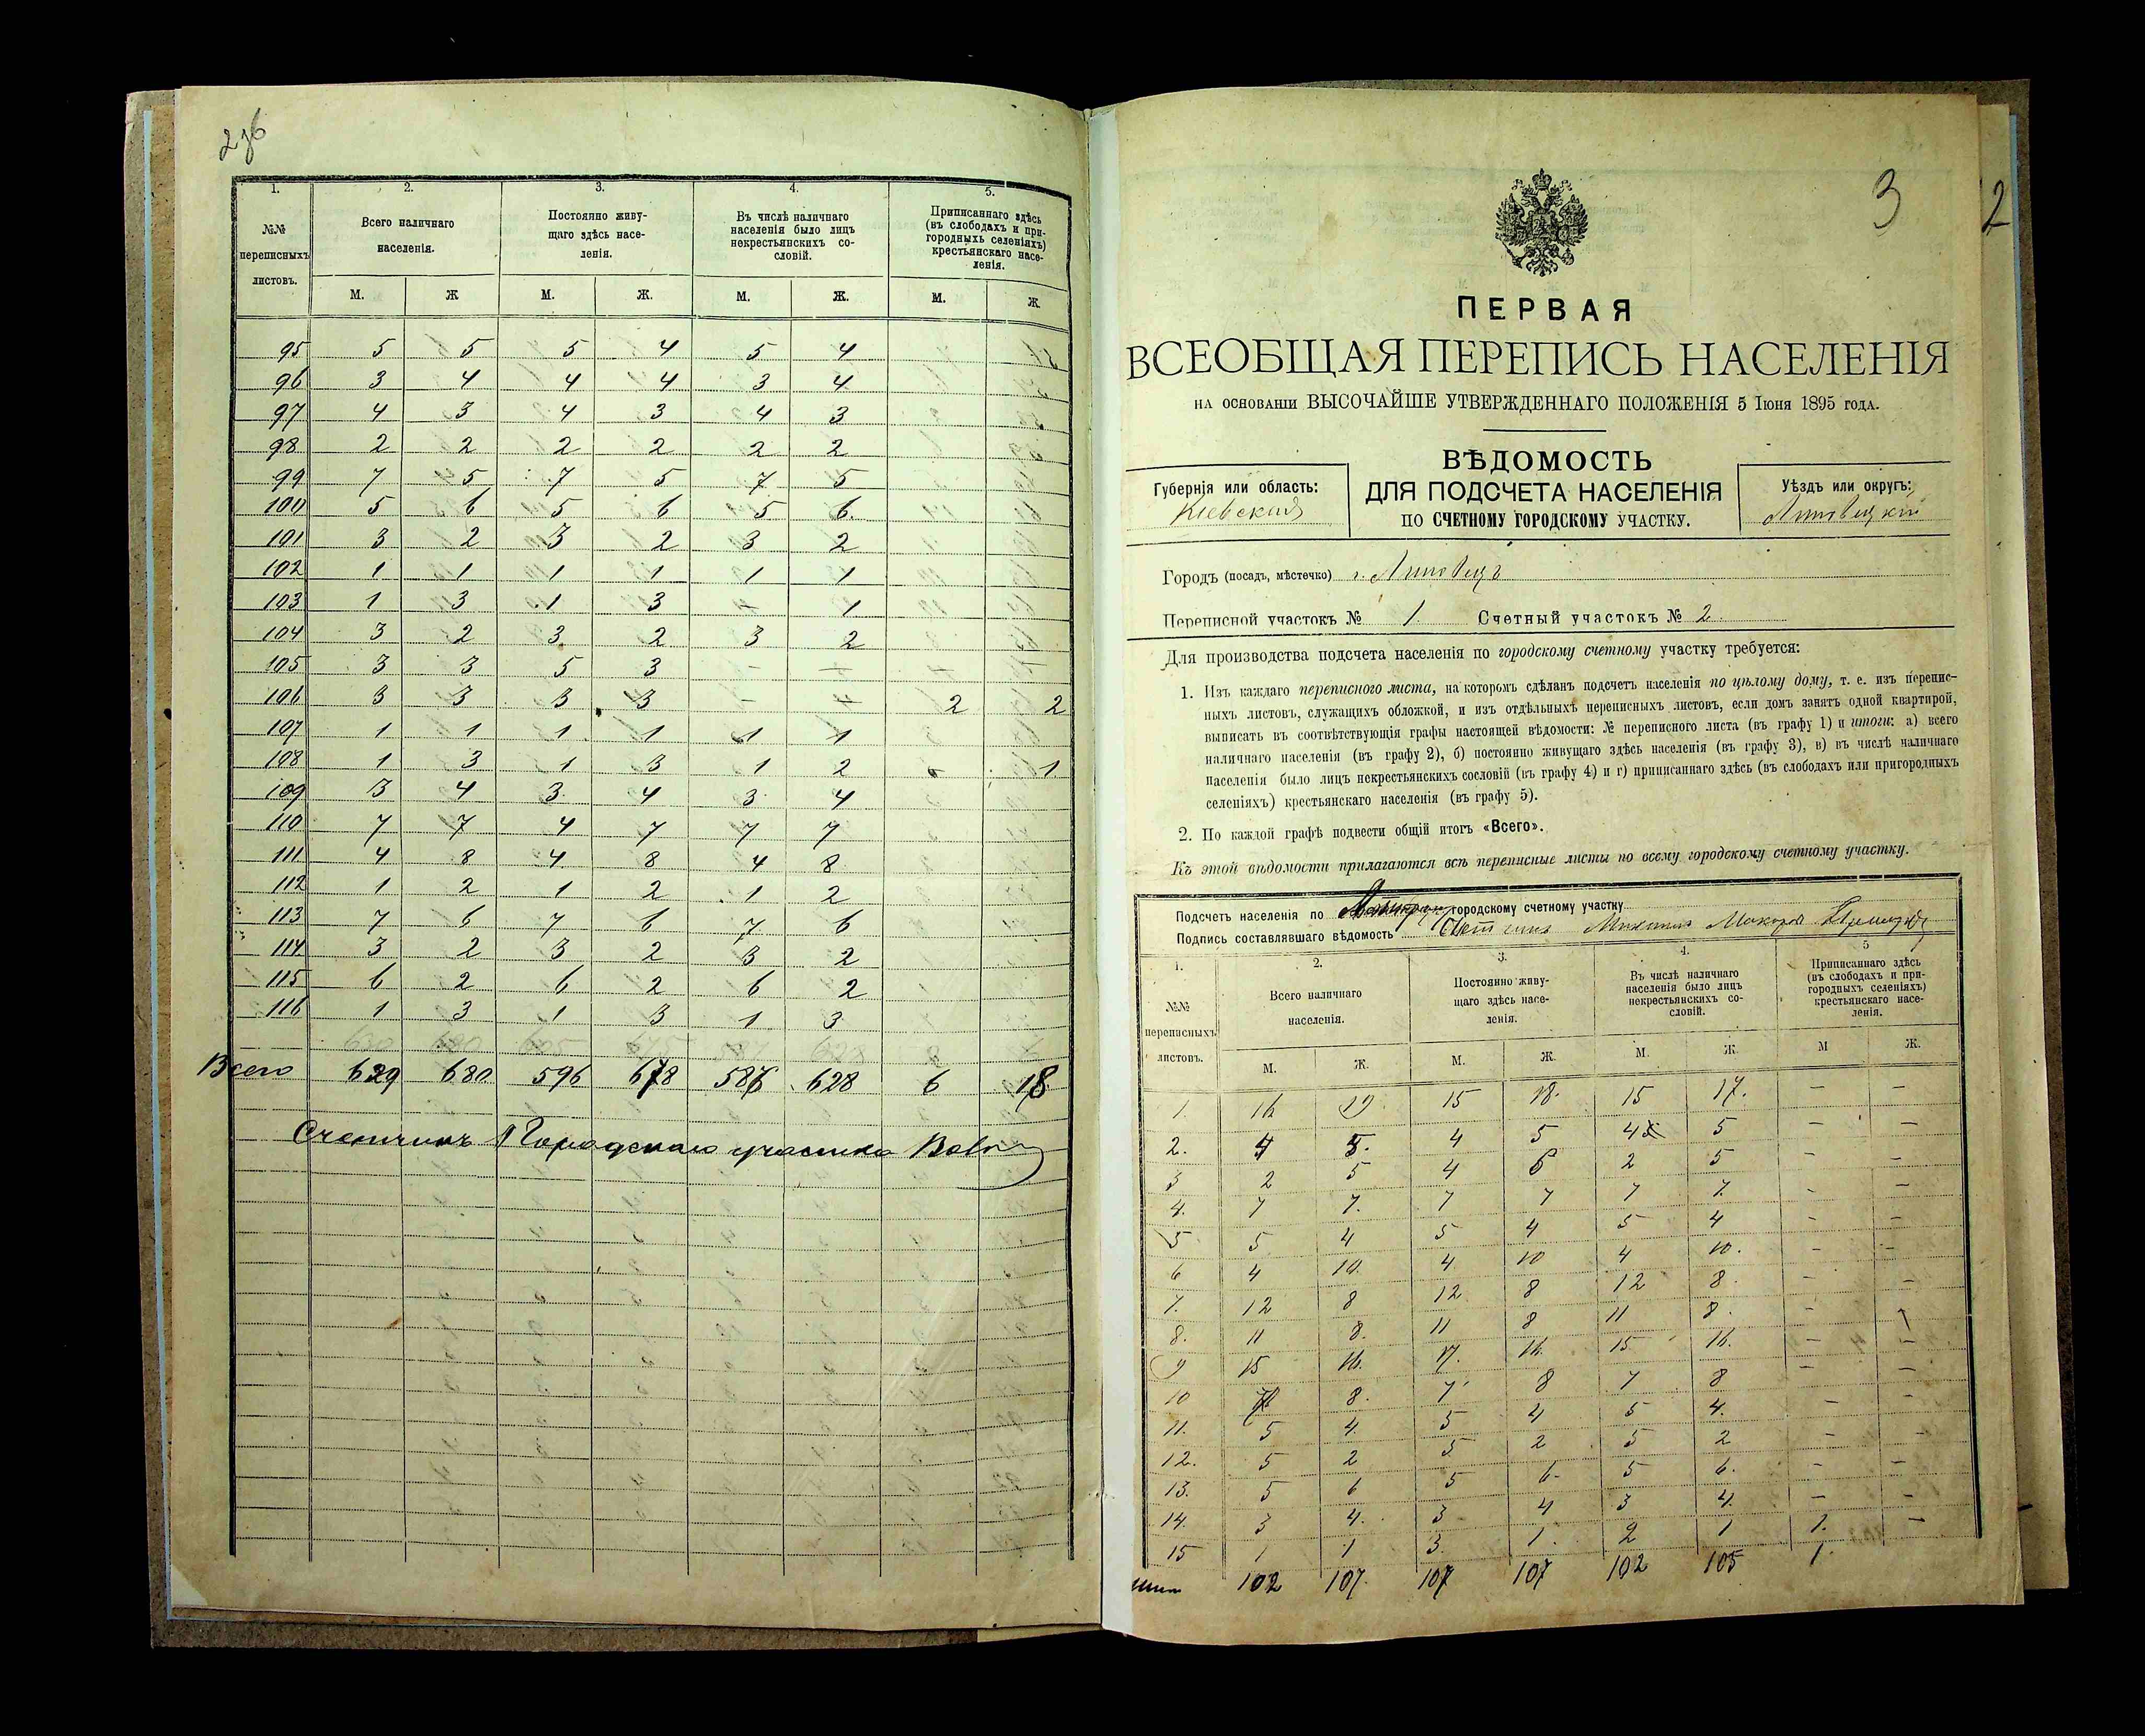 1. 2. 3. 4. 5.
№№ переписныхъ листовъ. Всего наличнаго населенія. Постоянно живущаго здѣсь населенія. Въ числѣ наличнаго населенія было лицъ некрестьянскихъ сословій. Приписаннаго здѣсь (въ слободахъ и пригородныхъ селеніяхъ) крестьянскаго населенія.
М. Ж М. Ж. М. Ж. М. Ж.
95 5 5 5 4 5 4
96 3 4 4 4 3 4
97 4 3 4 3 4 3
98 2 2 2 2 2 2
99 7 5 7 5 7 5
100 5 6 5 6 5 6
101 3 2 3 2 3 2
102 1 1 1 1 1 1
103 1 3 1 3 - 1
104 3 2 3 2 3 2
105 3 3 5 3 - -
106 3 3 3 3 - - 2 2
107 1 1 1 1 1 1
108 1 3 1 3 1 2 1
109 3 4 3 4 3 4
110 7 7 4 7 7 7
111 4 8 4 8 4 8
112 1 2 1 2 1 2
113 7 6 7 6 7 6
114 3 2 3 2 3 2
115 6 2 6 2 6 2
116 1 3 1 3 1 3
Всего 629 680 596 678 586 628 6 18
Счетчикъ 1 Городскаго участка
3 2
ПЕРВАЯ
ВСЕОБЩАЯ ПЕРЕПИСЬ НАСЕЛЕНІЯ
НА ОСНОВАНІИ ВЫСОЧАЙШЕ УТВЕРЖДЕННАГО ПОЛОЖЕНІЯ 5 Іюня 1895 ГОДА.
ВѢДОМОСТЬ
ДЛЯ ПОДСЧЕТА НАСЕЛЕНІЯ
ПО СЧЕТНОМУ ГОРОДСКОМУ УЧАСТКУ.
Губернія или область:
Кіевская
Уѣздъ или округъ:
Липовецкій
Городъ (посадъ, мѣстечко) г. Липовецъ
Переписной участокъ № 1. Счетный участокъ № 2.
Для производства подсчета населенія по городскому счетному участку требуется:
1. Изъ каждаго переписного листа, на которомъ сдѣланъ подсчетъ населенія по цѣлому дому, т. е. изъ перепис-
ныхъ листовъ, служащихъ обложкой, и изъ отдѣльныхъ переписныхъ листовъ, если домъ занятъ одной квартирой,
выписать въ соотвѣтствующія графы настоящей вѣдомости: № переписного листа (въ графу 1) и итоги: а) всего
наличнаго населенія (въ графу 2), б) постоянно живущаго здѣсь населенія (въ графу 3), в) въ числѣ наличнаго
населенія было лицъ некрестьянскихъ сословій (въ графу 4) и г) приписаннаго здѣсь (въ слободахъ или пригородныхъ
селеніяхъ) крестьянскаго населенія (въ графу 5).
2. По каждой графѣ подвести общій итогъ «Всего».
Къ этой вѣдомости прилагаются всѣ переписные листы по всему городскому счетному участку.
Подсчетъ населенія по городскому счетному участку
Подпись составлявшаго вѣдомость
1. 2. 3. 4. 5
№№ переписныхъ листовъ. Всего наличнаго населенія. Постоянно живущаго здѣсь населенія. Въ числѣ наличнаго населенія было лицъ некрестьянскихъ сословій. Приписаннаго здѣсь (въ слободахъ и пригородныхъ селеніяхъ) крестьянскаго населенія.
М. Ж. М. Ж. М. Ж. М Ж.
1. 16 19. 15 18. 15 17. — —
2. 4 5. 4 5 4 5 — —
3 2 5 4 6 2 5 - -
4. 7 7. 7 7 7 7. - —
5 5 4 5 4 5 4 - -
6 4 10. 4 10 4 10. - -
7. 12 8 12 8 12 8. — —
8. 11 8. 11 8 11 8. -
9 15 16. 17. 16. 15 16. — —
10 7 8. 7 8 7 8 — —
11. 5 4. 5 4 5 4. — -
12. 5 2 5 2 5 2 — -
13. 5 6 5 6. 5 6. — —
14. 3 4. 3 4 3 4. — —
15 1 1 3. 1. 2 1 1. —
102 107. 107 107 102 105 1.